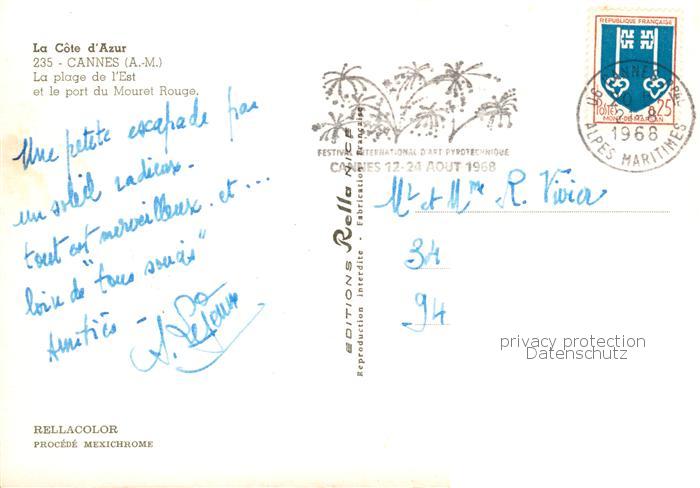 La Côte d'Azur
235 - CANNES (A.-M.)
La plage de l'Est
et le port du Mouret Rouge.
Une petite escapade par
un soleil radieux.
tout est merveilleux. et...
loin de "tous soucis"
Amitiés -
RELLACOLOR
PROCÉDÉ MEXICHROME
EDITIONS Rella NICE
Reproduction interdite - Fabrication Française
FESTIVAL INTERNATIONAL D'ART PYROTECHNIQUE
CANNES 12-24 AOUT 1968
REPUBLIQUE FRANÇAISE
POSTES 0,25
MONT-DE-MARSAN
06 CANNES PPAL
1968
ALPES MARITIMES
Mr et Mme R. Vivier
34
94
privacy protection
Datenschutz